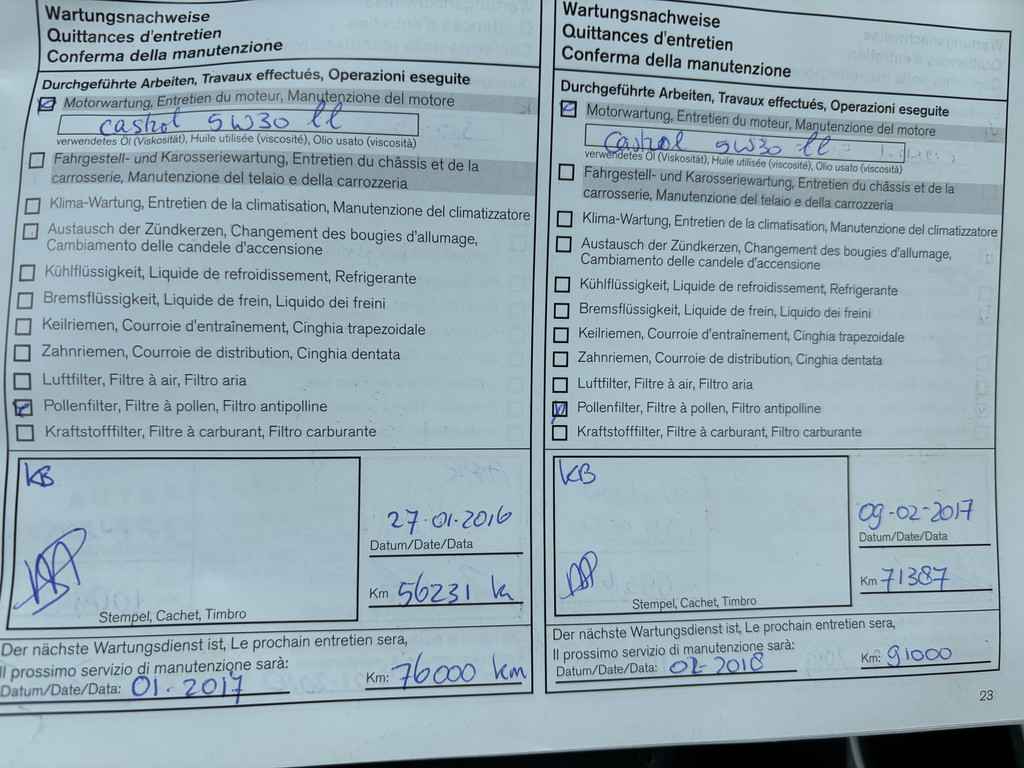 Wartungsnachweise
Quittances d'entretien
Conferma della manutenzione
Durchgeführte Arbeiten, Travaux effectués, Operazioni eseguite
Motorwartung, Entretien du moteur, Manutenzione del motore
castrol 5W30 ll
verwendetes Öl (Viskosität), Huile utilisée (viscosité), Olio usato (viscosità)
Fahrgestell- und Karosseriewartung, Entretien du châssis et de la
carrosserie, Manutenzione del telaio e della carrozzeria
Klima-Wartung, Entretien de la climatisation, Manutenzione del climatizzatore
Austausch der Zündkerzen, Changement des bougies d'allumage,
Cambiamento delle candele d'accensione
Kühlflüssigkeit, Liquide de refroidissement, Refrigerante
Bremsflüssigkeit, Liquide de frein, Liquido dei freini
Keilriemen, Courroie d'entraînement, Cinghia trapezoidale
Zahnriemen, Courroie de distribution, Cinghia dentata
Luftfilter, Filtre à air, Filtro aria
Pollenfilter, Filtre à pollen, Filtro antipolline
Kraftstofffilter, Filtre à carburant, Filtro carburante
KB
27-01-2016
Datum/Date/Data
Km 56231 k
Stempel, Cachet, Timbro
Der nächste Wartungsdienst ist, Le prochain entretien sera,
Il prossimo servizio di manutenzione sarà:
Datum/Date/Data: 01.2017
Km: 76000 km
Wartungsnachweise
Quittances d'entretien
Conferma della manutenzione
Durchgeführte Arbeiten, Travaux effectués, Operazioni eseguite
Motorwartung, Entretien du moteur, Manutenzione del motore
Castrol 5W30 ll
verwendetes Öl (Viskosität), Huile utilisée (viscosité), Olio usato (viscosità)
Fahrgestell- und Karosseriewartung, Entretien du châssis et de la
carrosserie, Manutenzione del telaio e della carrozzeria
Klima-Wartung, Entretien de la climatisation, Manutenzione del climatizzatore
Austausch der Zündkerzen, Changement des bougies d'allumage,
Cambiamento delle candele d'accensione
Kühlflüssigkeit, Liquide de refroidissement, Refrigerante
Bremsflüssigkeit, Liquide de frein, Liquido dei freini
Keilriemen, Courroie d'entraînement, Cinghia trapezoidale
Zahnriemen, Courroie de distribution, Cinghia dentata
Luftfilter, Filtre à air, Filtro aria
Pollenfilter, Filtre à pollen, Filtro antipolline
Kraftstofffilter, Filtre à carburant, Filtro carburante
KB
09-02-2017
Datum/Date/Data
Km 71387
Stempel, Cachet, Timbro
Der nächste Wartungsdienst ist, Le prochain entretien sera,
Il prossimo servizio di manutenzione sarà:
Datum/Date/Data: 02-2018
Km: 91000
23